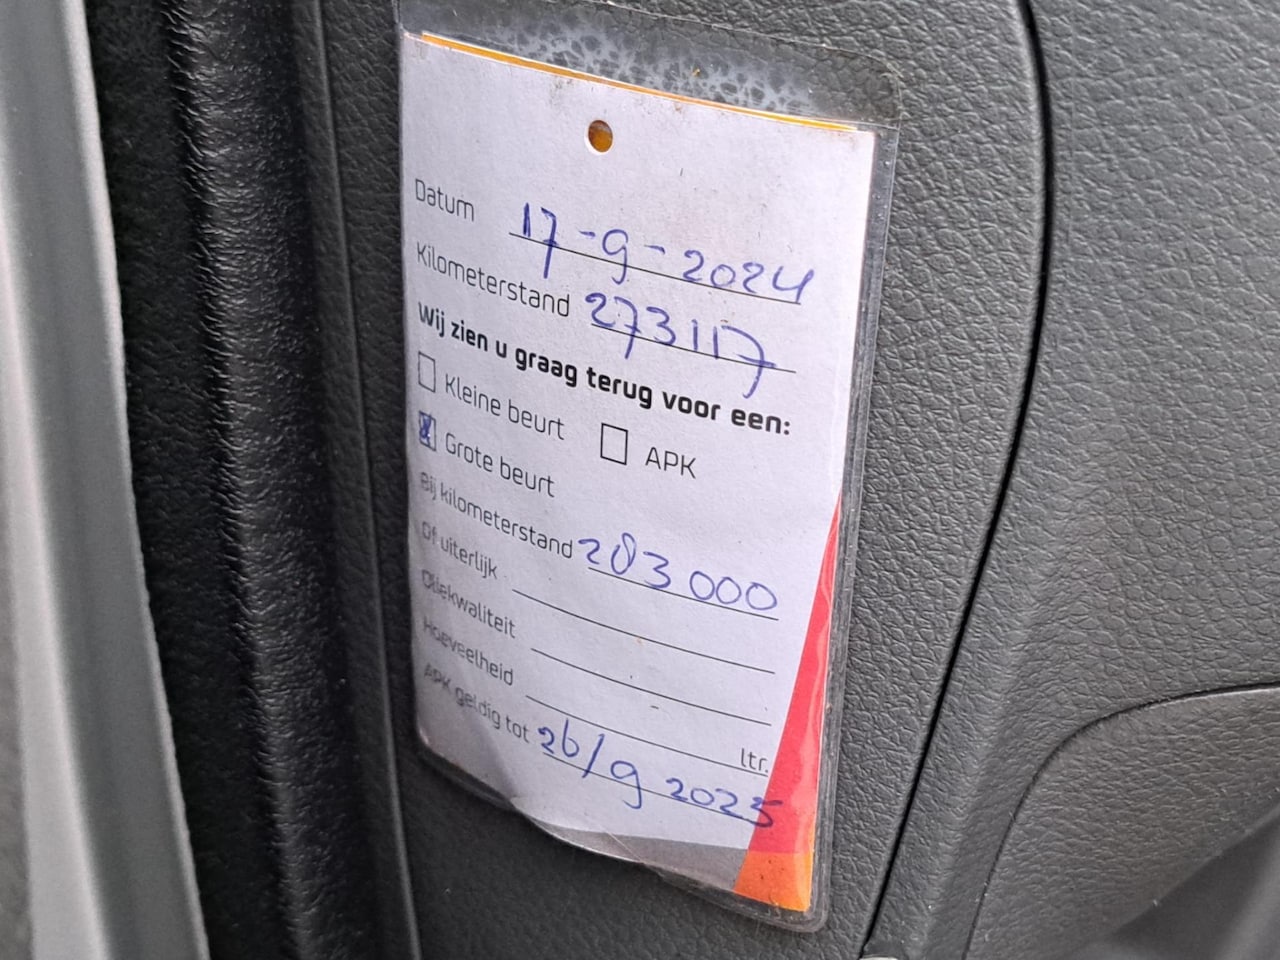 Datum 17-9-2024
Kilometerstand 273117
Wij zien u graag terug voor een:
Kleine beurt
APK
Grote beurt
Bij kilometerstand 283000
Of uiterlijk
Oliekwaliteit
Hoeveelheid ltr.
APK geldig tot 26/9 2025